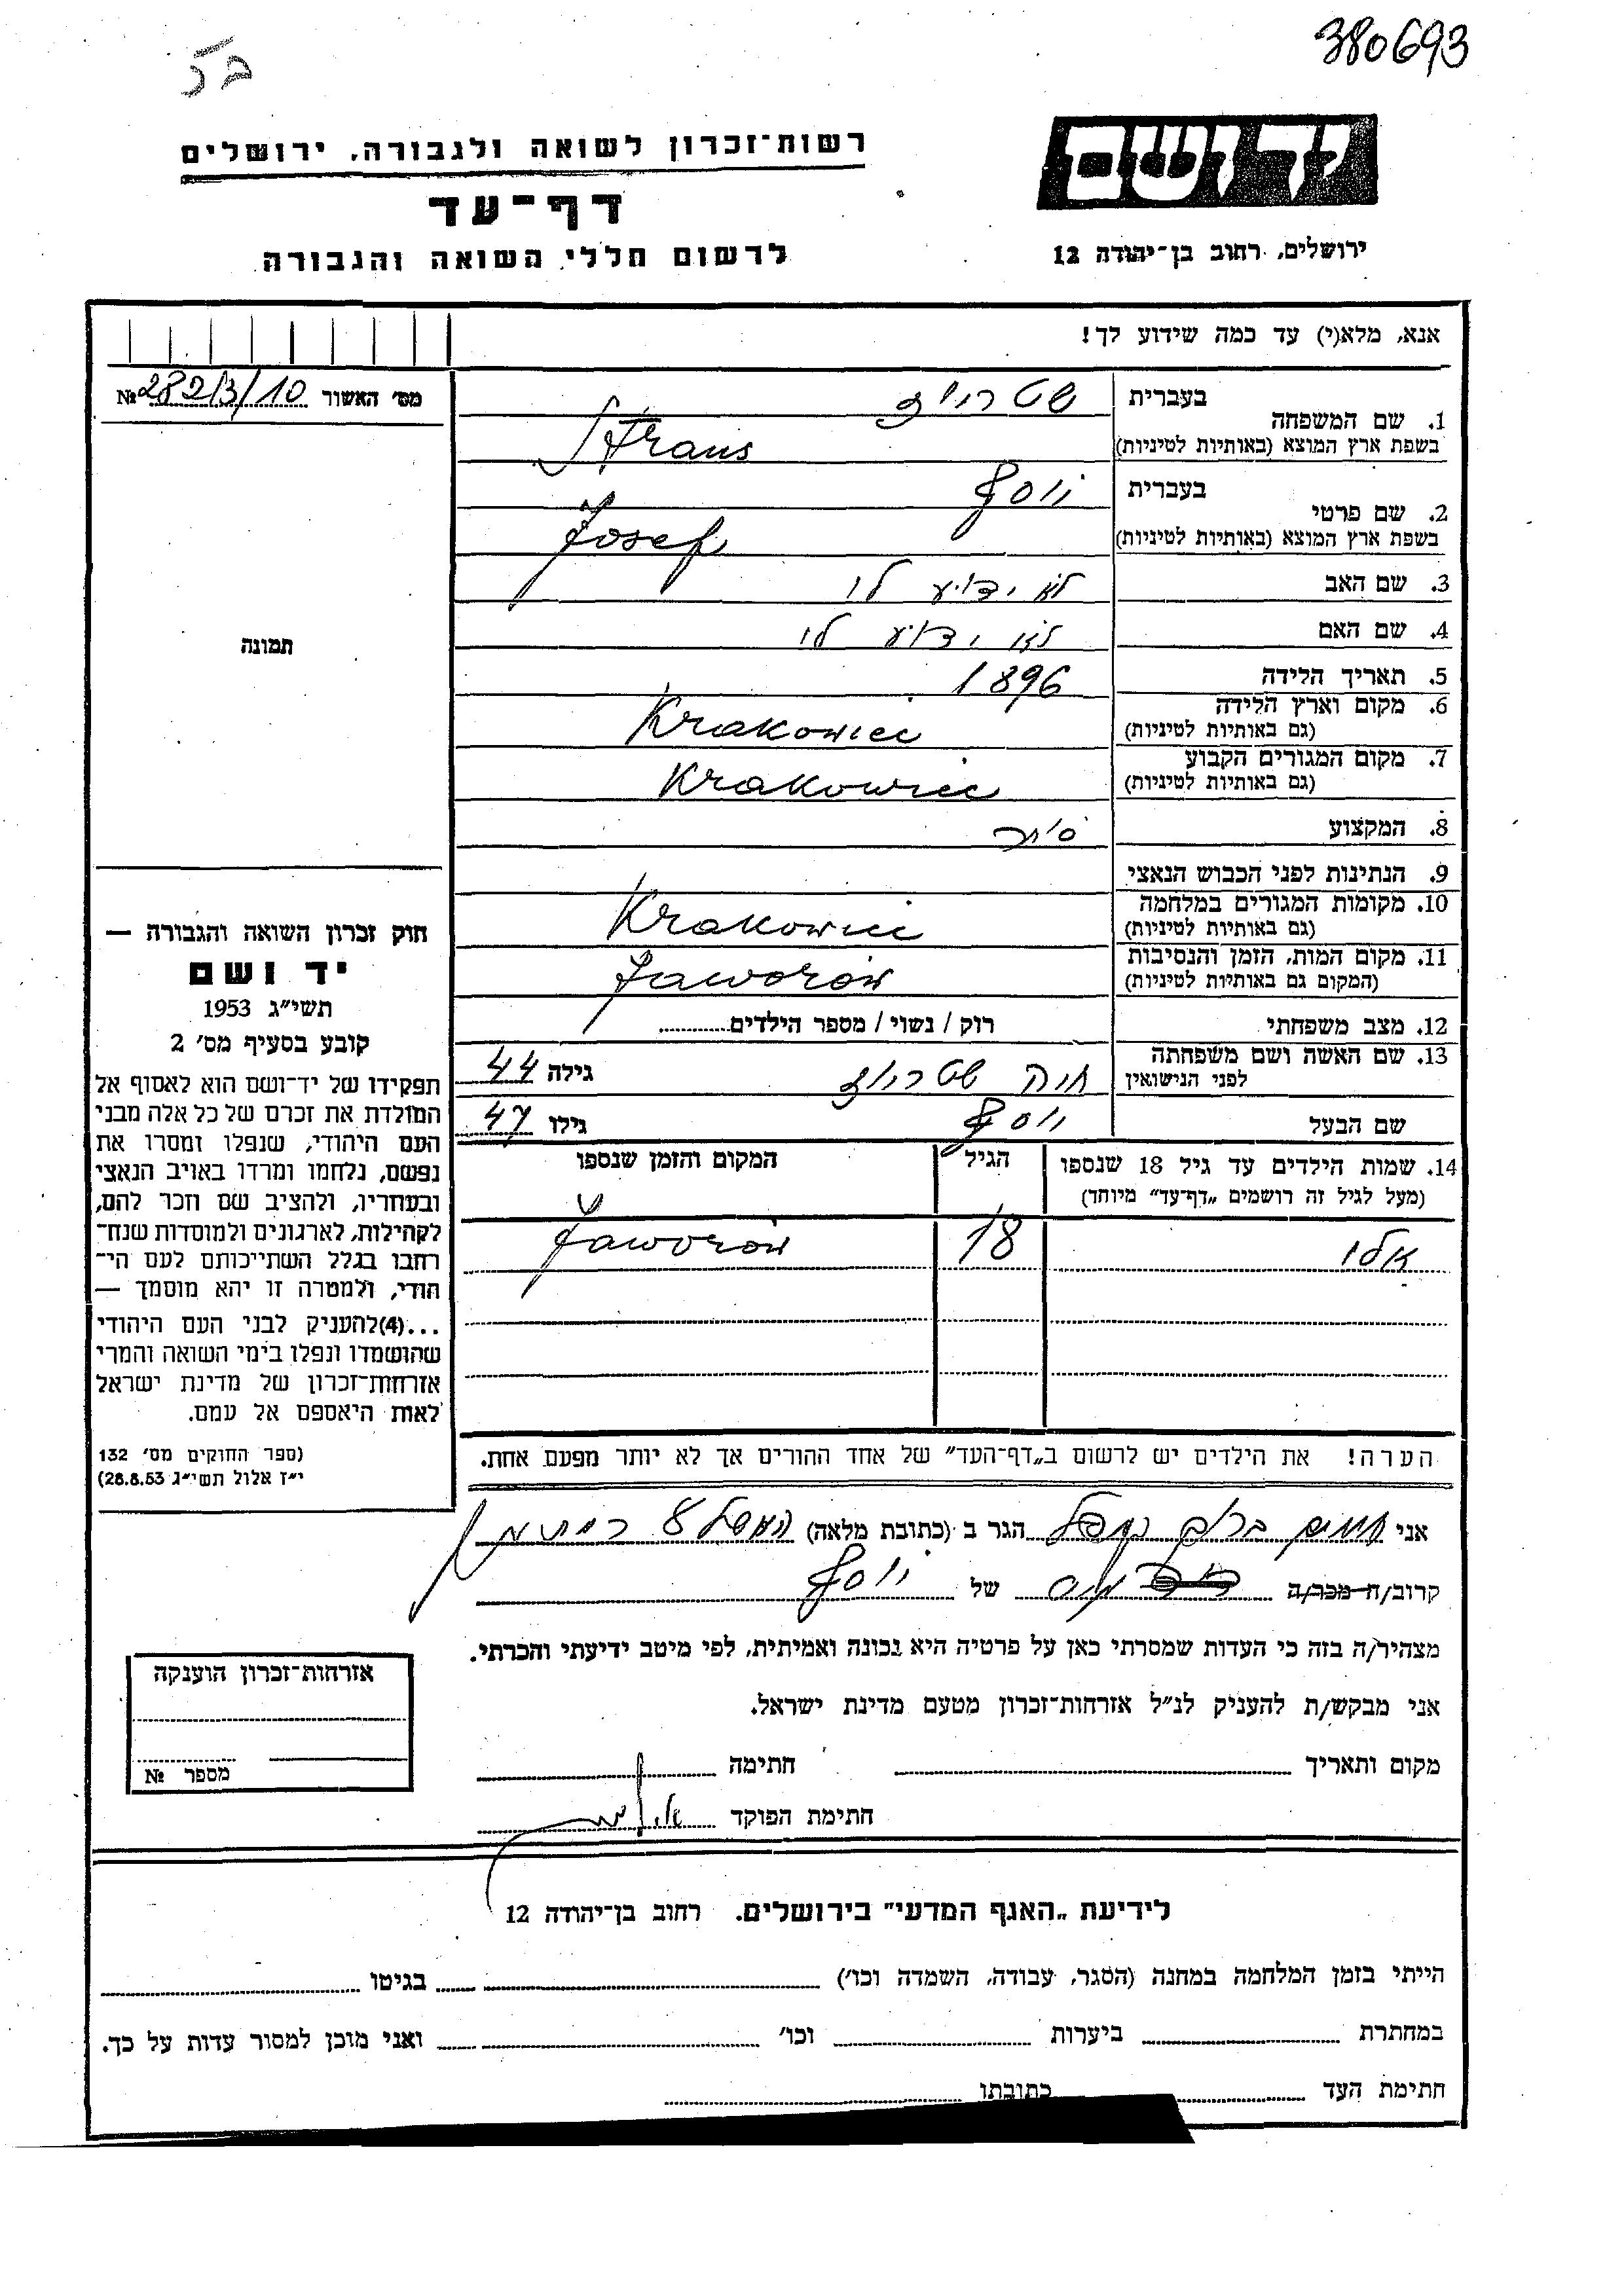 380693
רשות־זכרון לשואה ולגבורה, ירושלים
יד ושם
דף־עד
לרשום חללי השואה והגבורה
ירושלים, רחוב בן־יהודה 12
אנא, מלא(י) עד כמה שידוע לך!
מס׳ האשור № 282/3/10
1. שם המשפחה
בעברית
בשפת ארץ המוצא (באותיות לטיניות)
Strans
2. שם פרטי
בעברית יוסף
בשפת ארץ המוצא (באותיות לטיניות)
Josef
3. שם האב לא ידוע לי
4. שם האם לא ידוע לי
5. תאריך הלידה 1896
6. מקום וארץ הלידה
(גם באותיות לטיניות) Krakowiec
7. מקום המגורים הקבוע
(גם באותיות לטיניות) Krakowiec
8. המקצוע
9. הנתינות לפני הכבוש הנאצי
10. מקומות המגורים במלחמה
(גם באותיות לטיניות) Krakowiec
11. מקום המות, הזמן והנסיבות
(המקום גם באותיות לטיניות) Jaworów
12. מצב משפחתי רוק / נשוי / מספר הילדים
13. שם האשה ושם משפחתה
לפני הנישואין חיה גילה 44
שם הבעל יוסף גילו 47
14. שמות הילדים עד גיל 18 שנספו הגיל המקום והזמן שנספו
(מעל לגיל זה רושמים „דף־עד״ מיוחד)
18 Jaworów
הערה! את הילדים יש לרשום ב„דף־העד״ של אחד ההורים אך לא יותר מפעם אחת.
תמונה
חוק זכרון השואה והגבורה —
יד ושם
תשי״ג 1953
קובע בסעיף מס׳ 2
תפקידו של יד־ושם הוא לאסוף אל
המולדת את זכרם של כל אלה מבני
העם היהודי, שנפלו ומסרו את
נפשם, נלחמו ומרדו באויב הנאצי
ובעוזריו, ולהציב שם וזכר להם,
לקהילות, לארגונים ולמוסדות שנח־
רחבו בגלל השתייכותם לעם הי־
הודי, ולמטרה זו יהא מוסמך —
...(4)להעניק לבני העם היהודי
שהושמדו ונפלו בימי השואה והמרי
אזרחות־זכרון של מדינת ישראל
לאות היאספם אל עמם.
(ספר החוקים מס׳ 132
י״ז אלול תשי״ג 28.8.53)
אני הגר ב (כתובת מלאה)
קרוב/ה מכר/ה של יוסף
מצהיר/ה בזה כי העדות שמסרתי כאן על פרטיה היא נכונה ואמיתית, לפי מיטב ידיעתי והכרתי.
אני מבקש/ת להעניק לנ״ל אזרחות־זכרון מטעם מדינת ישראל.
מקום ותאריך חתימה
חתימת הפוקד
אזרחות־זכרון הוענקה
מספר №
לידיעת „האגף המדעי״ בירושלים. רחוב בן־יהודה 12
הייתי בזמן המלחמה במחנה (הסגר, עבודה, השמדה וכו׳) בגיטו
במחתרת ביערות וכו׳ ואני מוכן למסור עדות על כך.
חתימת העד כתובתו